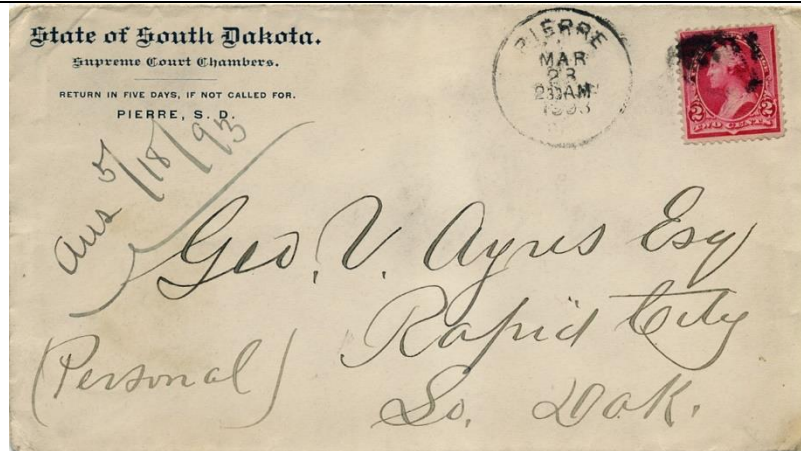 State of South Dakota.
Supreme Court Chambers.
RETURN IN FIVE DAYS, IF NOT CALLED FOR.
PIERRE, S. D.
PIERRE
MAR
23
1893
2
2
TWO CENTS
Ans 5/18/93
Geo. V. Ayres Esq
Rapid City
(Personal)
So. Dak.